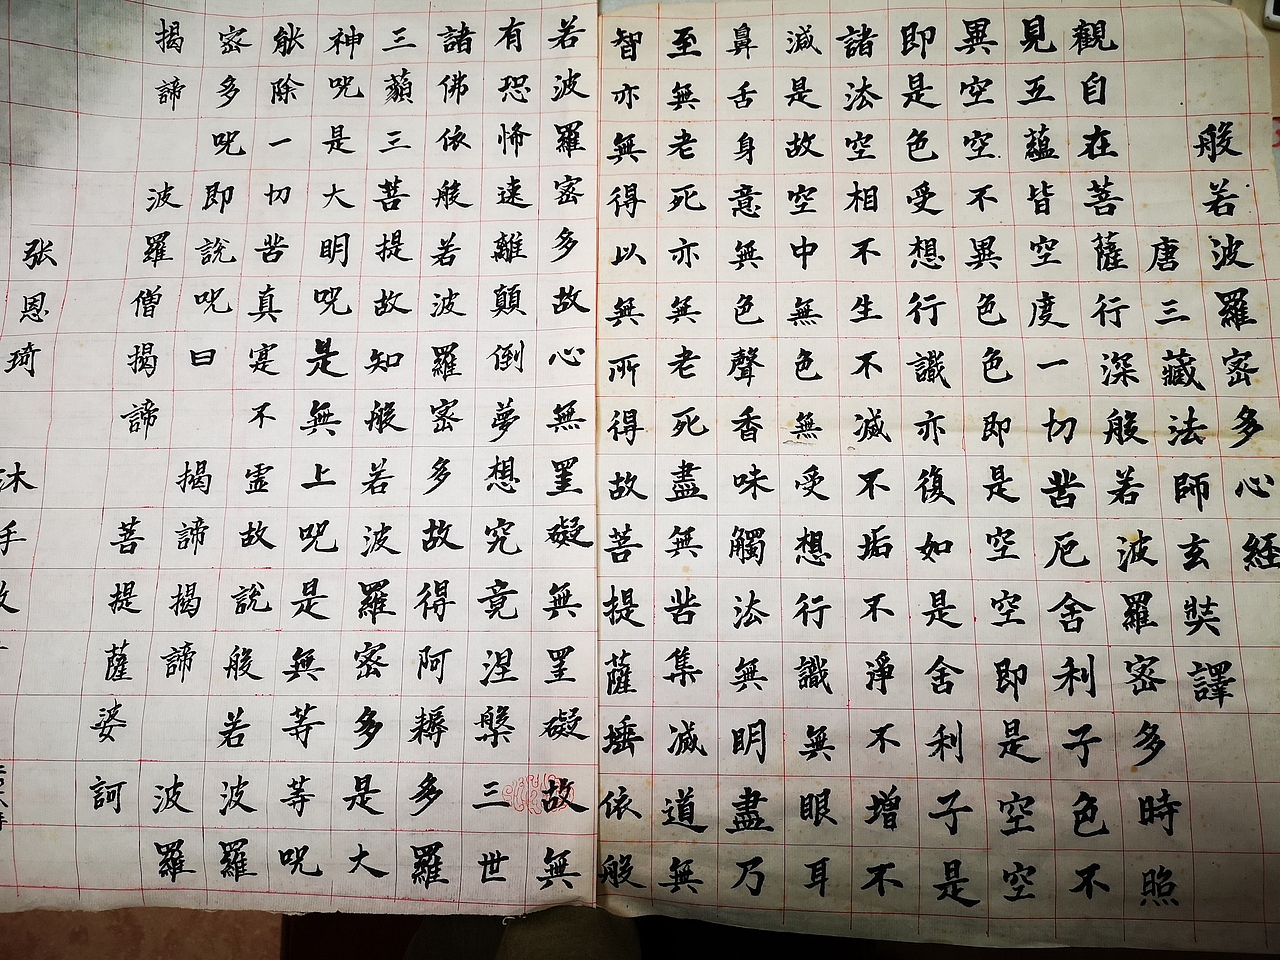 般若波羅密多心経
唐三藏法師玄奘譯
觀自在菩薩行深般若波羅密多時照
見五蘊皆空度一切苦厄舍利子色不
異空空不異色色即是空空即是空空
即是色受想行識亦復如是舍利子是
諸法空相不生不滅不垢不淨不增不
減是故空中無色無受想行識無眼耳
鼻舌身意無色聲香味觸法無明盡乃
至無老死亦無老死盡無苦集滅道無
智亦無得以無所得故菩提薩埵依般
若波羅密多故心無罣礙無罣礙故無
有恐怖遠離顛倒夢想究竟涅槃三世
諸佛依般若波羅密多故得阿耨多羅
三藐三菩提故知般若波羅密多是大
神咒是大明咒是無上咒是無等等咒
能除一切苦真寔不虛故說般若波羅
密多咒即說咒曰 揭諦揭諦 波羅
揭諦 波羅僧揭諦 菩提薩婆訶
张恩琦 沐手